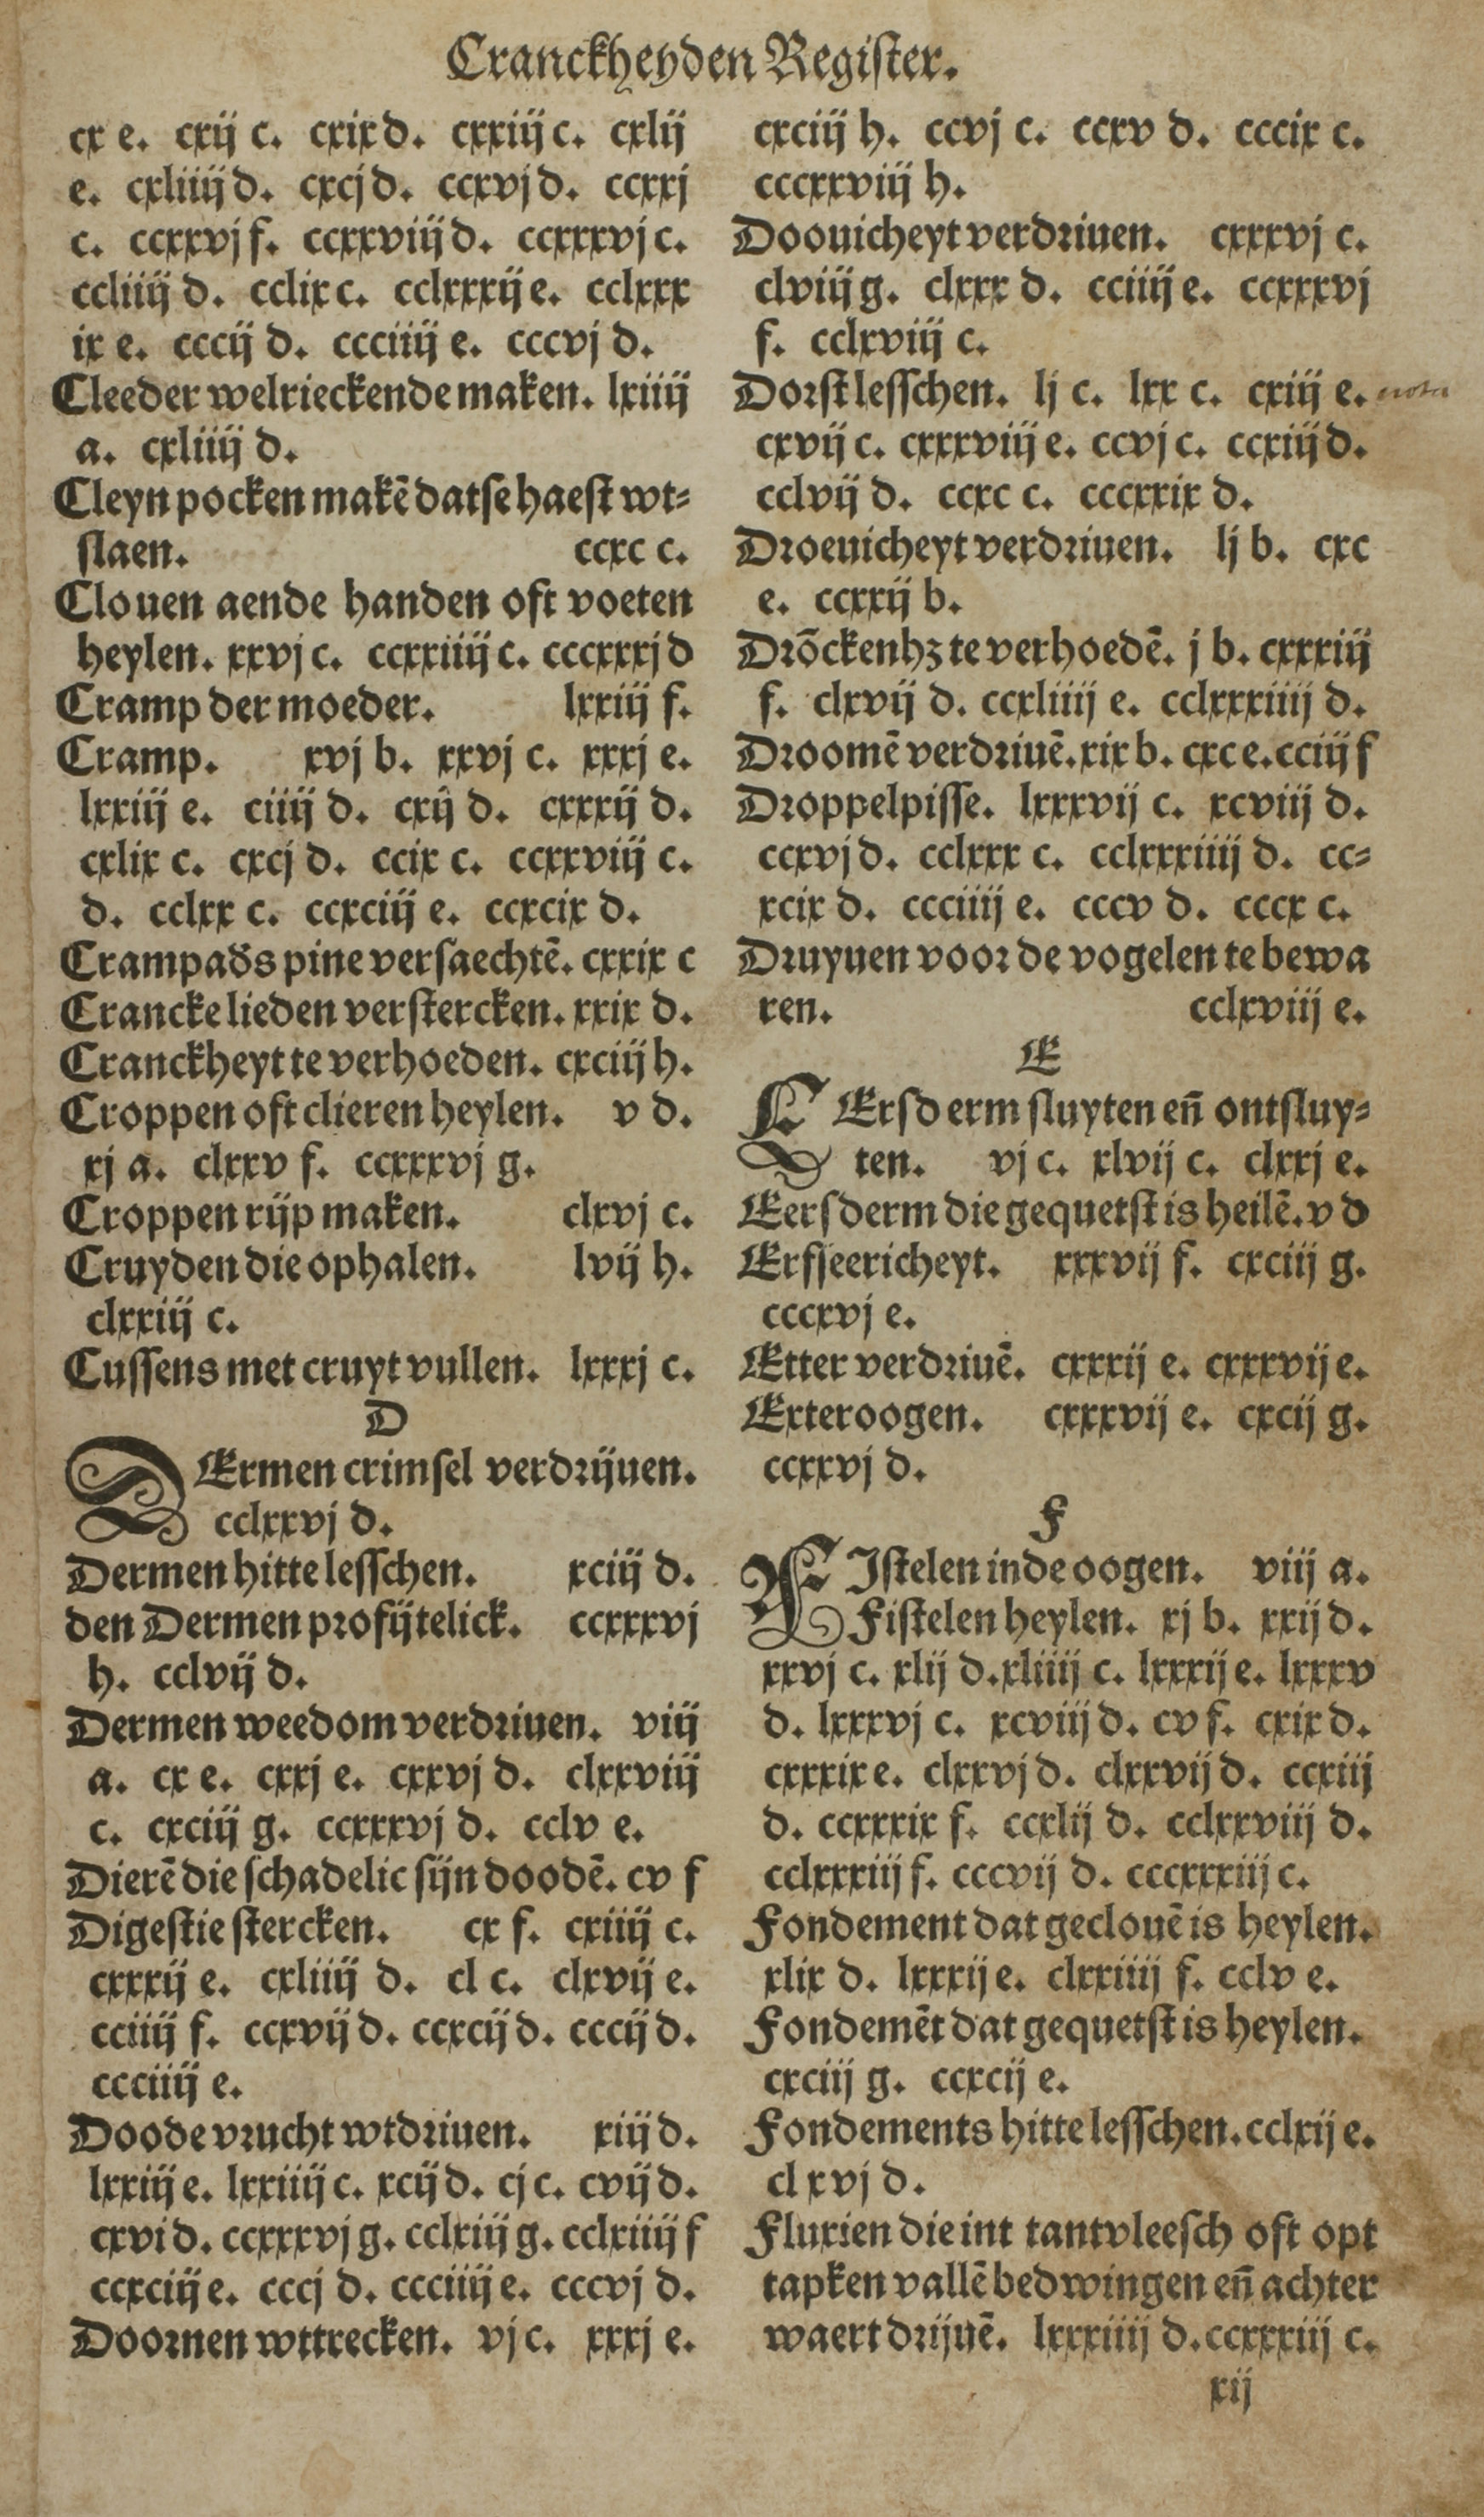 Cranckheyden Register.
cx e. cxij c. cxix d. cxxiij c. cxlij
e. cxliiij d. cxcj d. ccxvj d. ccxxj
c. ccxxvj f. ccxxviij d. ccxxxvj c.
ccliiij d. cclix c. cclxxxij e. cclxxx
ix e. cccij d. ccciiij e. cccvj d.
Cleeder welrieckende maken. lxiiij
a. cxliiij d.
Cleyn pocken makē datse haest wt⸗
slaen. ccxc c.
Clouen aende handen oft voeten
heylen. xxvj c. ccxxiiij c. cccxxxj d
Cramp der moeder. lxxiij f.
Cramp. xvj b. xxvj c. xxxj e.
lxxiij e. ciiij d. cxij d. cxxxij d.
cxlix c. cxcj d. ccix c. ccxxviij c.
d. cclxx c. ccxciij e. ccxcix d.
Crampaďs pine versaechtē. cxxix c
Crancke lieden verstercken. xxix d.
Cranckheyt te verhoeden. cxciij h.
Croppen oft clieren heylen. v d.
xj a. clxxv f. ccxxxvj g.
Croppen rijp maken. clxvj c.
Cruyden die ophalen. lvij h.
clxxiij c.
Cussens met cruyt vullen. lxxxj c.
D
DErmen crimsel verdrijuen.
cclxxvj d.
Dermen hitte lesschen. xciij d.
den Dermen profijtelick. ccxxxvj
h. cclvij d.
Dermen weedom verdriuen. viij
a. cx e. cxxj e. cxxvj d. clxxviij
c. cxciij g. ccxxxvj d. cclv e.
Dierē die schadelic sijn doodē. cv f
Digestie stercken. cx f. cxiiij c.
cxxxij e. cxliiij d. cl c. clxvij e.
cciiij f. ccxvij d. ccxcij d. cccij d.
ccciiij e.
Doode vrucht wtdriuen. xiij d.
lxxiij e. lxxiiij c. xcij d. cj c. cvij d.
cxvi d. ccxxxvj g. cclxiij g. cclxiiij f
ccxciij e. cccj d. ccciiij e. cccvj d.
Doornen wttrecken. vj c. xxxj e.
cxciij h. ccvj c. ccxv d. cccix c.
cccxxviij h.
Doouicheyt verdriuen. cxxxvj c.
clviij g. clxxx d. cciiij e. ccxxxvj
f. cclxviij c.
Dorst lesschen. lj c. lxx c. cxiij e. nota
cxvij c. cxxxviij e. ccvj c. ccxiij d.
cclvij d. ccxc c. cccxxix d.
Droeuicheyt verdriuen. lj b. cxc
e. ccxxij b.
Drōckenhʒ te verhoedē. j b. cxxxiij
f. clxvij d. ccxliiij e. cclxxxiiij d.
Droomē verdriuē. xix b. cxc e. cciij f
Droppelpisse. lxxxvij c. xcviij d.
ccxvj d. cclxxx c. cclxxxiiij d. cc⸗
xcix d. ccciiij e. cccv d. cccx c.
Druyuen voor de vogelen te bewa
ren. cclxviij e.
E
EErsderm sluyten eñ ontsluy⸗
ten. vj c. xlvij c. clxxj e.
Eersderm die gequetst is heilē. v d
Erfseericheyt. xxxvij f. cxciij g.
cccxvj e.
Etter verdriuē. cxxxij e. cxxxvij e.
Exteroogen. cxxxvij e. cxcij g.
ccxxvj d.
F
FIstelen inde oogen. viij a.
Fistelen heylen. xj b. xxij d.
xxvj c. xlij d. xliiij c. lxxxij e. lxxxv
d. lxxxvj c. xcviij d. cv f. cxix d.
cxxxix e. clxxvj d. clxxvij d. ccxiij
d. ccxxxix f. ccxlij d. cclxxviij d.
cclxxxiij f. cccvij d. cccxxxiij c.
Fondement dat geclouē is heylen.
xlix d. lxxxij e. clxxiiij f. cclv e.
Fondemēt dat gequetst is heylen.
cxciij g. ccxcij e.
Fondements hitte lesschen. cclxij e.
clxvj d.
Fluxien die int tantvleesch oft opt
tapken vallē bedwingen eñ achter
waert drijuē. lxxxiiij d. ccxxxiij c.
xij